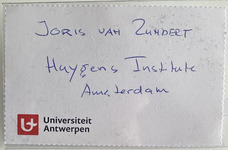 Joris van Zundert
Huygens Institute
Amsterdam
Universiteit
Antwerpen